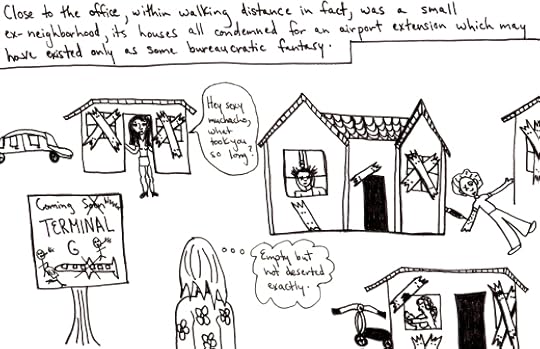 Close to the office, within walking distance in fact, was a small
ex-neighborhood, its houses all condemned for an airport extension which may
have existed only as some bureaucratic fantasy.
Hey sexy
muchacho,
what
took you
so long?
Coming Soon
TERMINAL
G
Empty but
not deserted
exactly.